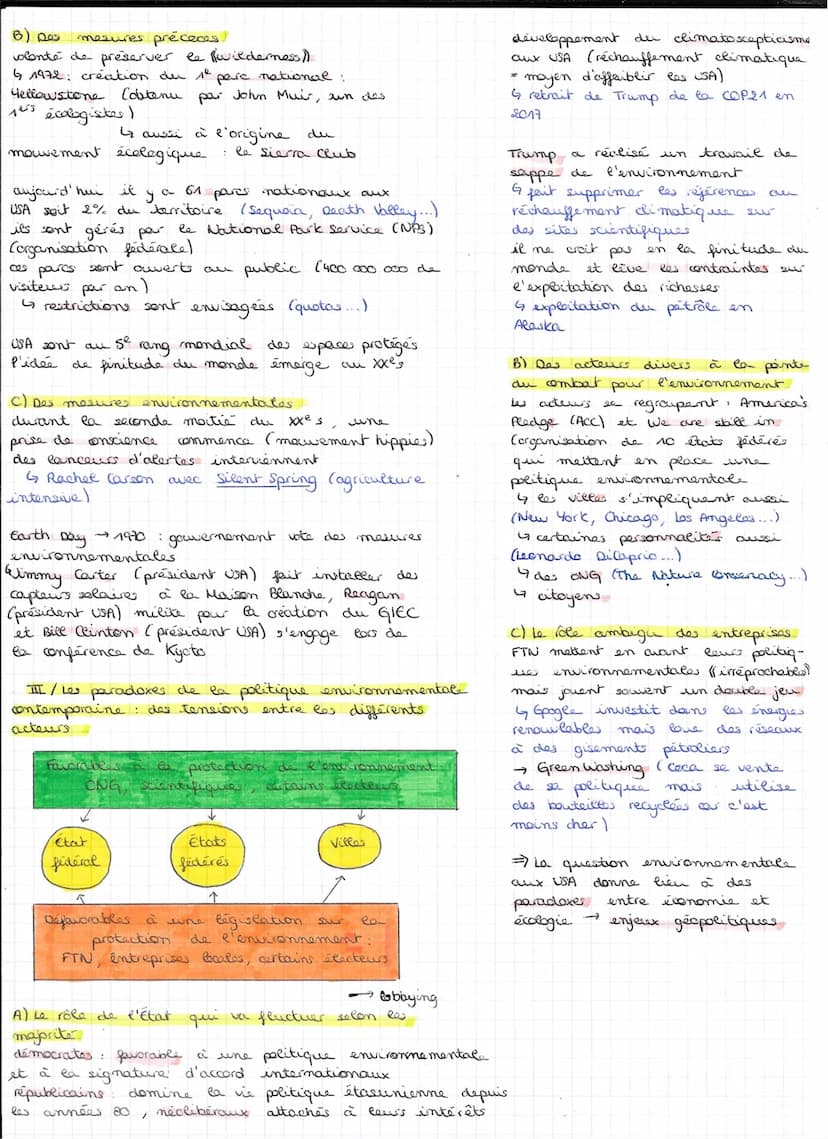 B) Des mesures précoces
volonté de préserver le «wilderness»
↳ 1972 : création du 1e parc national :
Yellowstone (obtenu par John Muir, un des
1ers écologistes)
↳ aussi à l'origine du
mouvement écologique : le Sierra Club
aujourd'hui il y a 61 parcs nationaux aux
USA soit 2% du territoire (Sequoia, Death Valley...)
ils sont gérés par le National Park Service (NPS)
(organisation fédérale)
ces parcs sont ouverts au public (400 000 000 de
visiteurs par an)
↳ restrictions sont envisagées (quotas...)
USA sont au 5e rang mondial des espaces protégés
l'idée de finitude du monde émerge au XXe s
C) Des mesures environnementales
durant la seconde moitié du XXe s, une
prise de conscience commence (mouvement hippies)
des lanceurs d'alertes interviennent
↳ Rachel Carson avec Silent Spring (agriculture
intensive)
Earth Day → 1970 : gouvernement vote des mesures
environnementales
↳ Jimmy Carter (président USA) fait installer des
capteurs solaires à la Maison Blanche, Reagan
(président USA) milite pour la création du GIEC
et Bill Clinton (président USA) s'engage lors de
la conférence de Kyoto
III / Les paradoxes de la politique environnementale
contemporaine : des tensions entre les différents
acteurs
Favorables à la protection de l'environnement :
ONG, scientifiques, certains électeurs
État
fédéral
États
fédérés
Villes
Défavorables à une législation sur la
protection de l'environnement :
FTN, entreprises locales, certains électeurs
→ lobbying
A) Le rôle de l'État qui va fluctuer selon les
majorité
démocrates : favorable à une politique environnementale
et à la signature d'accord internationaux
républicains : domine la vie politique étasunienne depuis
les années 80, néolibéraux attachés à leurs intérêts
développement du climatoscepticisme
aux USA (réchauffement climatique
= moyen d'affaiblir les USA)
↳ retrait de Trump de la COP21 en
2017
Trump a réalisé un travail de
sappe de l'environnement
↳ fait supprimer les références au
réchauffement climatique sur
des sites scientifiques
il ne croit pas en la finitude du
monde et lève les contraintes sur
l'exploitation des richesses
↳ exploitation du pétrole en
Alaska
B) Des acteurs divers à la pointe
du combat pour l'environnement
Les acteurs se regroupent : America's
Pledge (ACC) et We are still in
(organisation de 10 états fédérés
qui mettent en place une
politique environnementale
↳ les villes s'impliquent aussi
(New York, Chicago, Los Angeles...)
↳ certaines personnalités aussi
(Leonardo DiCaprio...)
↳ des ONG (The Nature Conservacy...)
↳ citoyens
C) Le rôle ambigu des entreprises
FTN mettent en avant leurs politiq-
ues environnementales «irréprochables»
mais jouent souvent un double jeu
↳ Google investit dans les énergies
renouvlables mais loue des réseaux
à des gisements pétroliers
→ GreenWashing (Coca se vente
de sa politique mais utilise
des bouteilles recyclées car c'est
moins cher)
⇒ La question environnementale
aux USA donne lieu à des
paradoxes entre économie et
écologie → enjeux géopolitiques